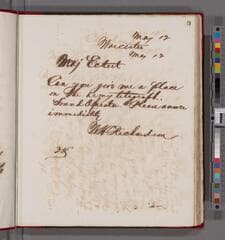 May 12
Worcester
May 12
Maj Eckert
Can you give me a place
in the army telegraph.
Sound Operator Please answer
immediately
W H Richardson